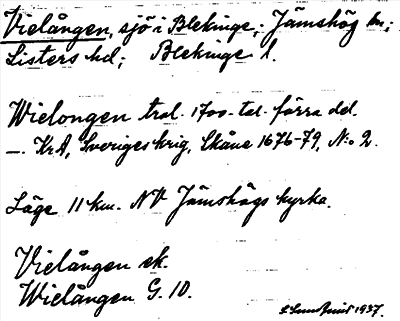 Vielången, sjö i Blekinge; Jämshög sn;
Listers hd; Blekinge l.
Wielongen trol. 1700-tal. förra del.
—. KrA, Sveriges krig, Skåne 1676-79, N:o 2.
Läge 11 km. NV Jämshögs kyrka.
Vielången ek.
Wielången G. 10.
1937.